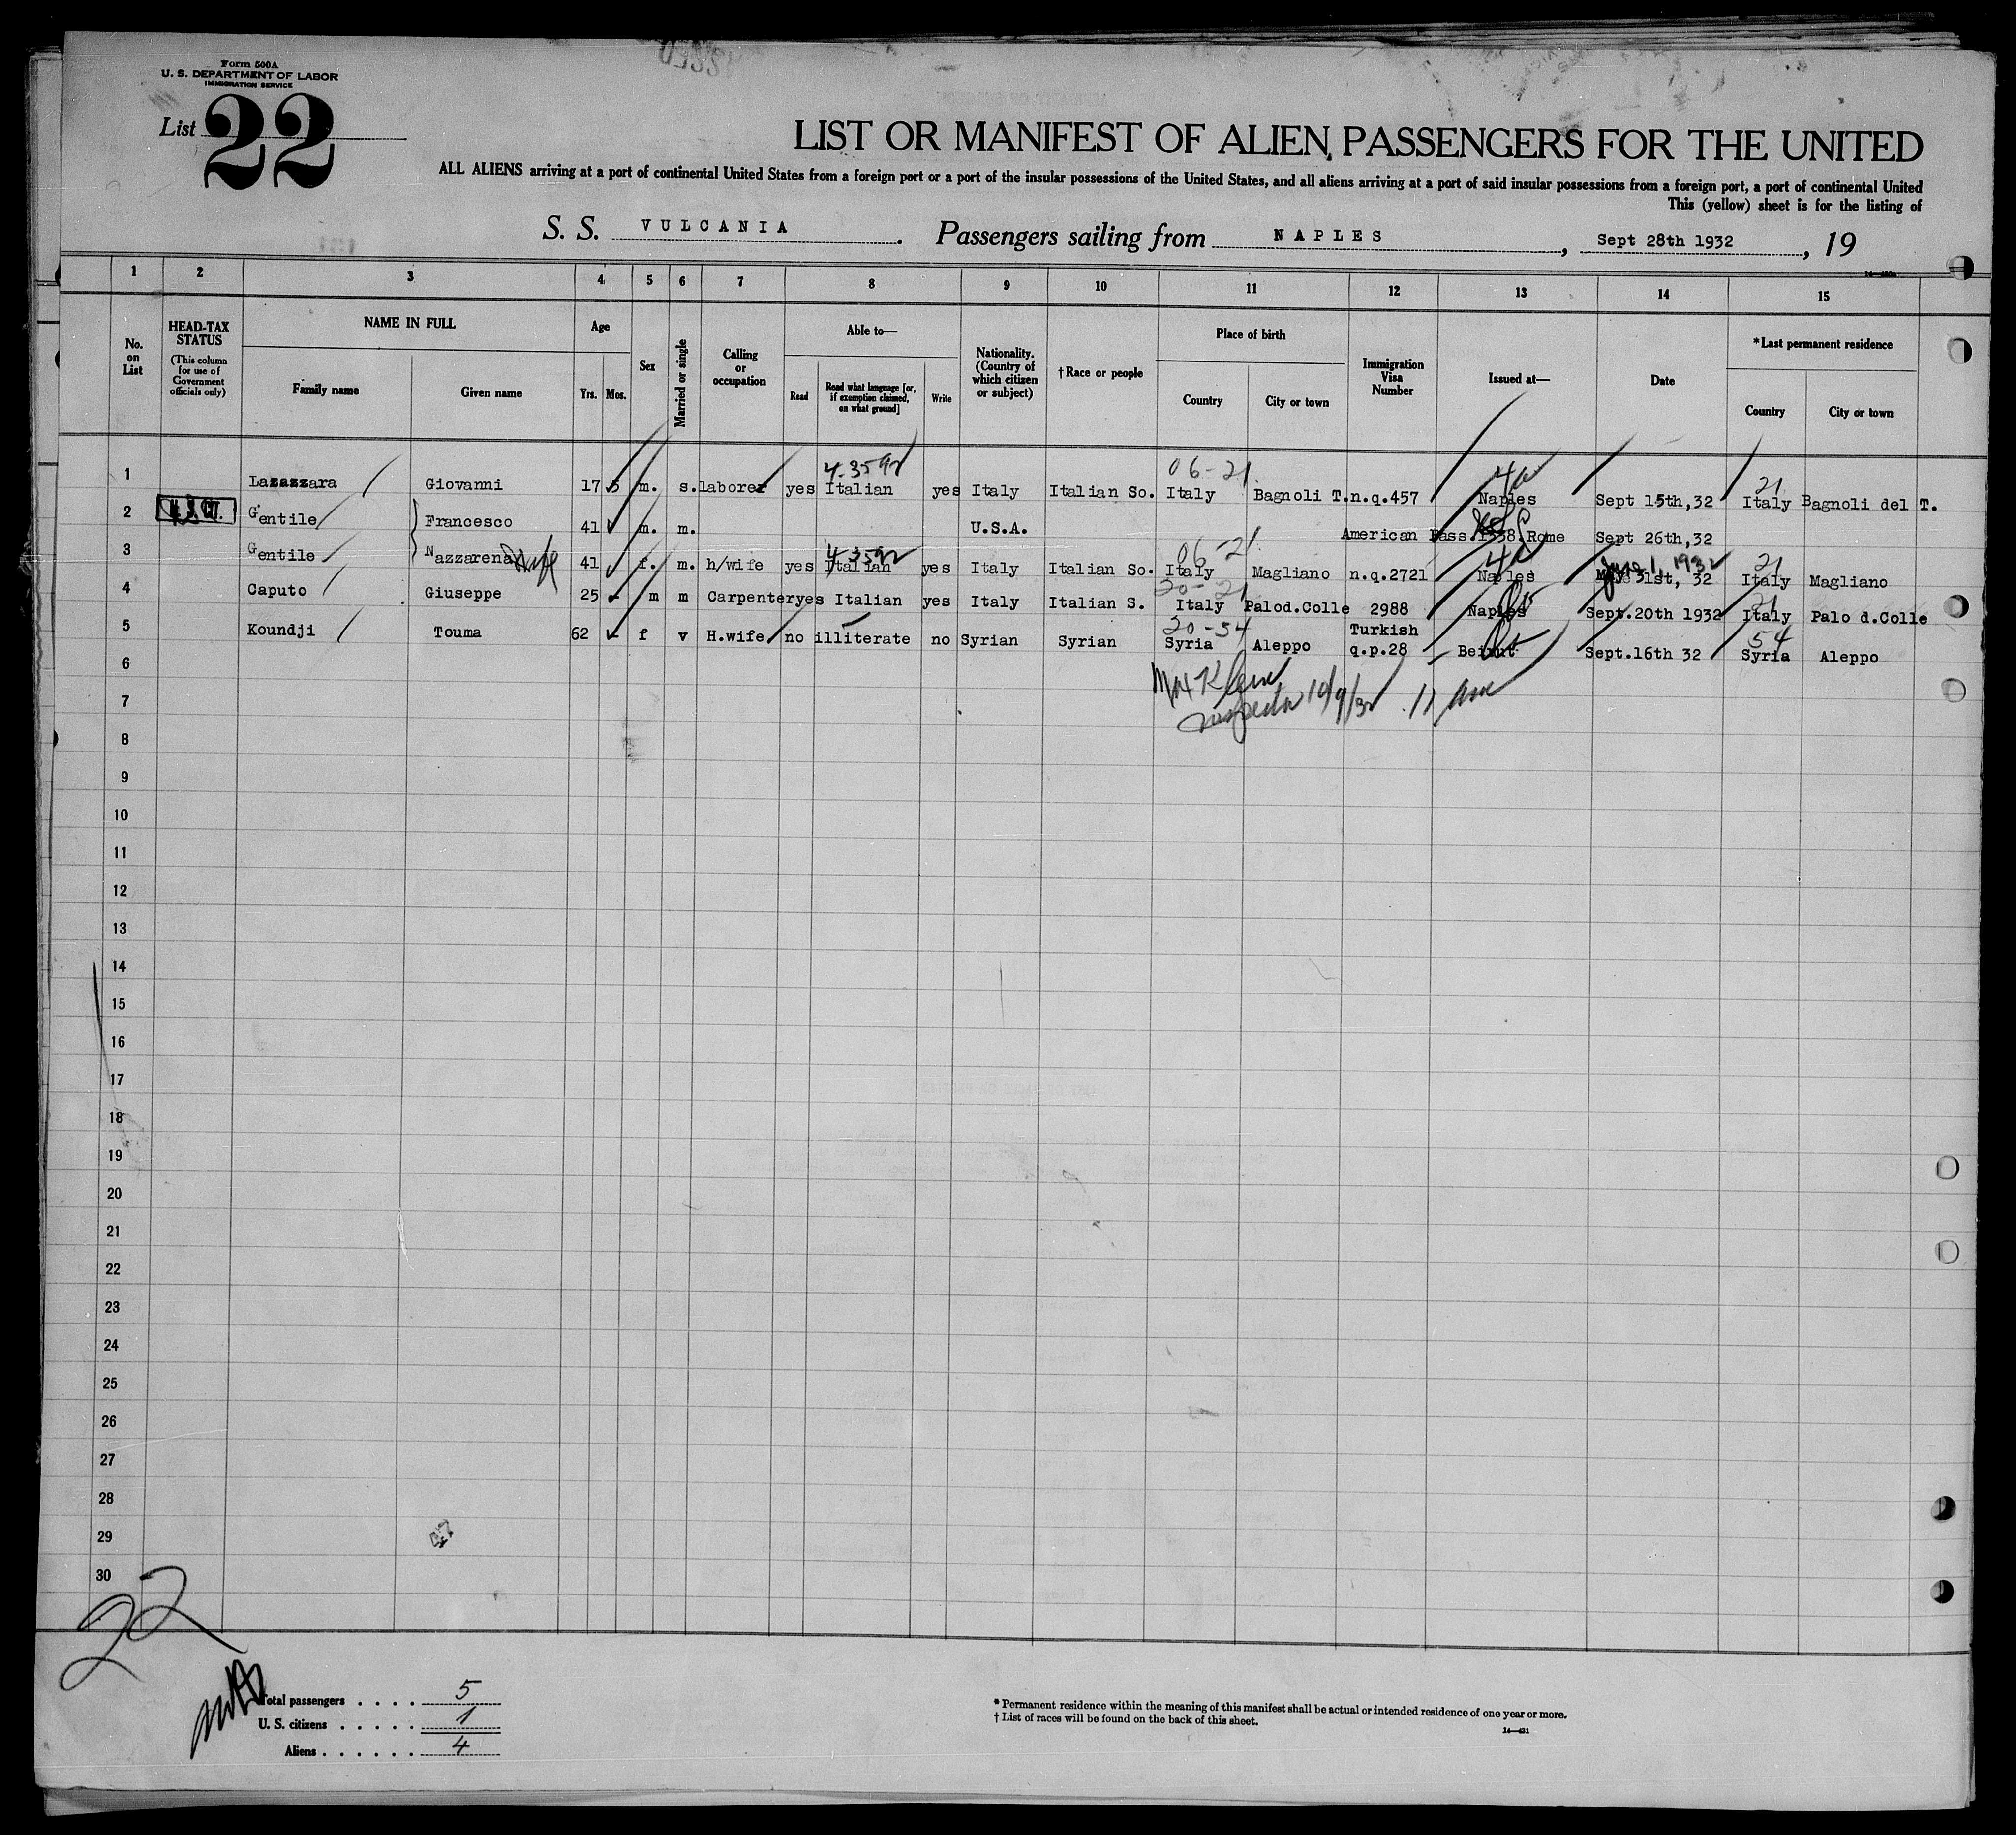 Form 500A
U. S. DEPARTMENT OF LABOR
IMMIGRATION SERVICE
List 22
LIST OR MANIFEST OF ALIEN PASSENGERS FOR THE UNITED
ALL ALIENS arriving at a port of continental United States from a foreign port or a port of the insular possessions of the United States, and all aliens arriving at a port of said insular possessions from a foreign port, a port of continental United
This (yellow) sheet is for the listing of
S. S. VULCANIA. Passengers sailing from NAPLES, Sept 28th 1932, 19
1 2 3 4 5 6 7 8 9 10 11 12 13 14 15
No. on List
HEAD-TAX STATUS
(This column for use of Government officials only)
NAME IN FULL
Family name
Given name
Age
Yrs. Mos.
Sex
Married or single
Calling or occupation
Able to—
Read
Read what language [or, if exemption claimed, on what ground]
Write
Nationality. (Country of which citizen or subject)
†Race or people
Place of birth
Country
City or town
Immigration Visa Number
Issued at—
Date
*Last permanent residence
Country
City or town
43592 06-21 21
1 Lazazzara Giovanni 17 5 m. s. laborer yes Italian yes Italy Italian So. Italy Bagnoli T. n.q.457 Naples Sept 15th,32 Italy Bagnoli del T.
2 Gentile Francesco 41 m. m. U.S.A. American Pass.1338 Rome Sept 26th,32
43592 06-21 June 1, 1932 21
3 Gentile Nazzarena wife 41 f. m. h/wife yes Italian yes Italy Italian So. Italy Magliano n.q.2721 Naples 1st, 32 Italy Magliano
20-21 21
4 Caputo Giuseppe 25 - m m Carpenter yes Italian yes Italy Italian S. Italy Palod.Colle 2988 Naples Sept.20th 1932 Italy Palo d.Colle
20-54 54
5 Koundji Touma 62 - f v H.wife no illiterate no Syrian Syrian Syria Aleppo Turkish q.p.28 Beirut Sept.16th 32 Syria Aleppo
6
Inspector 10/9/32
7
8
9
10
11
12
13
14
15
16
17
18
19
20
21
22
23
24
25
26
27
28
29
30
22
Total passengers . . . . 5
U. S. citizens . . . . . 1
Aliens . . . . . . 4
* Permanent residence within the meaning of this manifest shall be actual or intended residence of one year or more.
† List of races will be found on the back of this sheet.
14—421